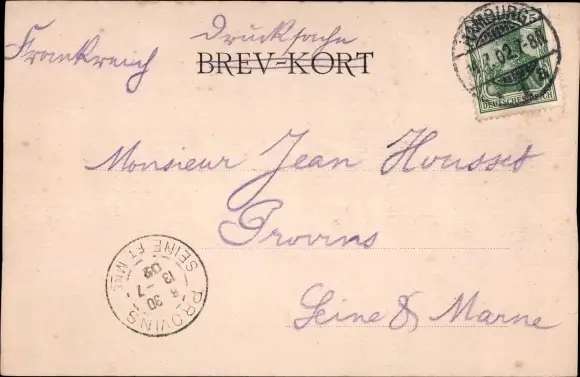 Drucksache
Frankreich
BREV-KORT
HAMBURG
7.02.7-8N
DEUTSCHES REICH
Monsieur Jean Housset
Provins
Seine & Marne
PROVINS
SEINE ET MNE
7-30
13
-7
02